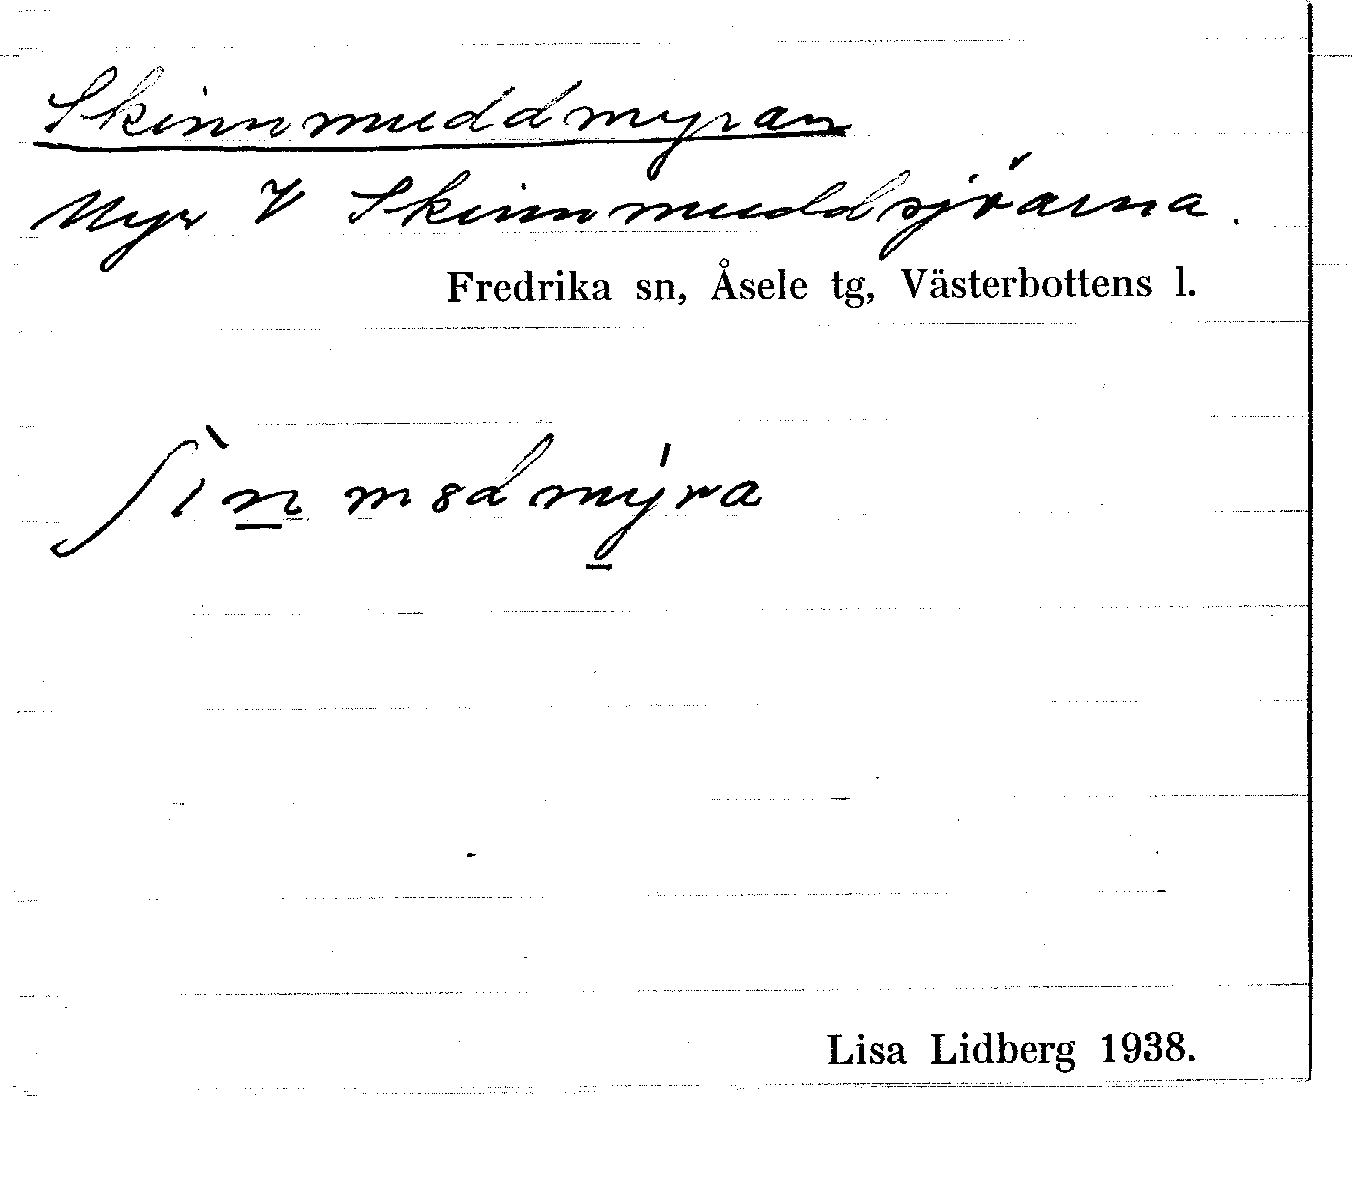 Skinnmuddmyran
Myr V Skinnmuddsjöarna.
Fredrika sn, Åsele tg, Västerbottens l.
ʃı̀n̲ mɞdmý̲ra
Lisa Lidberg 1938.